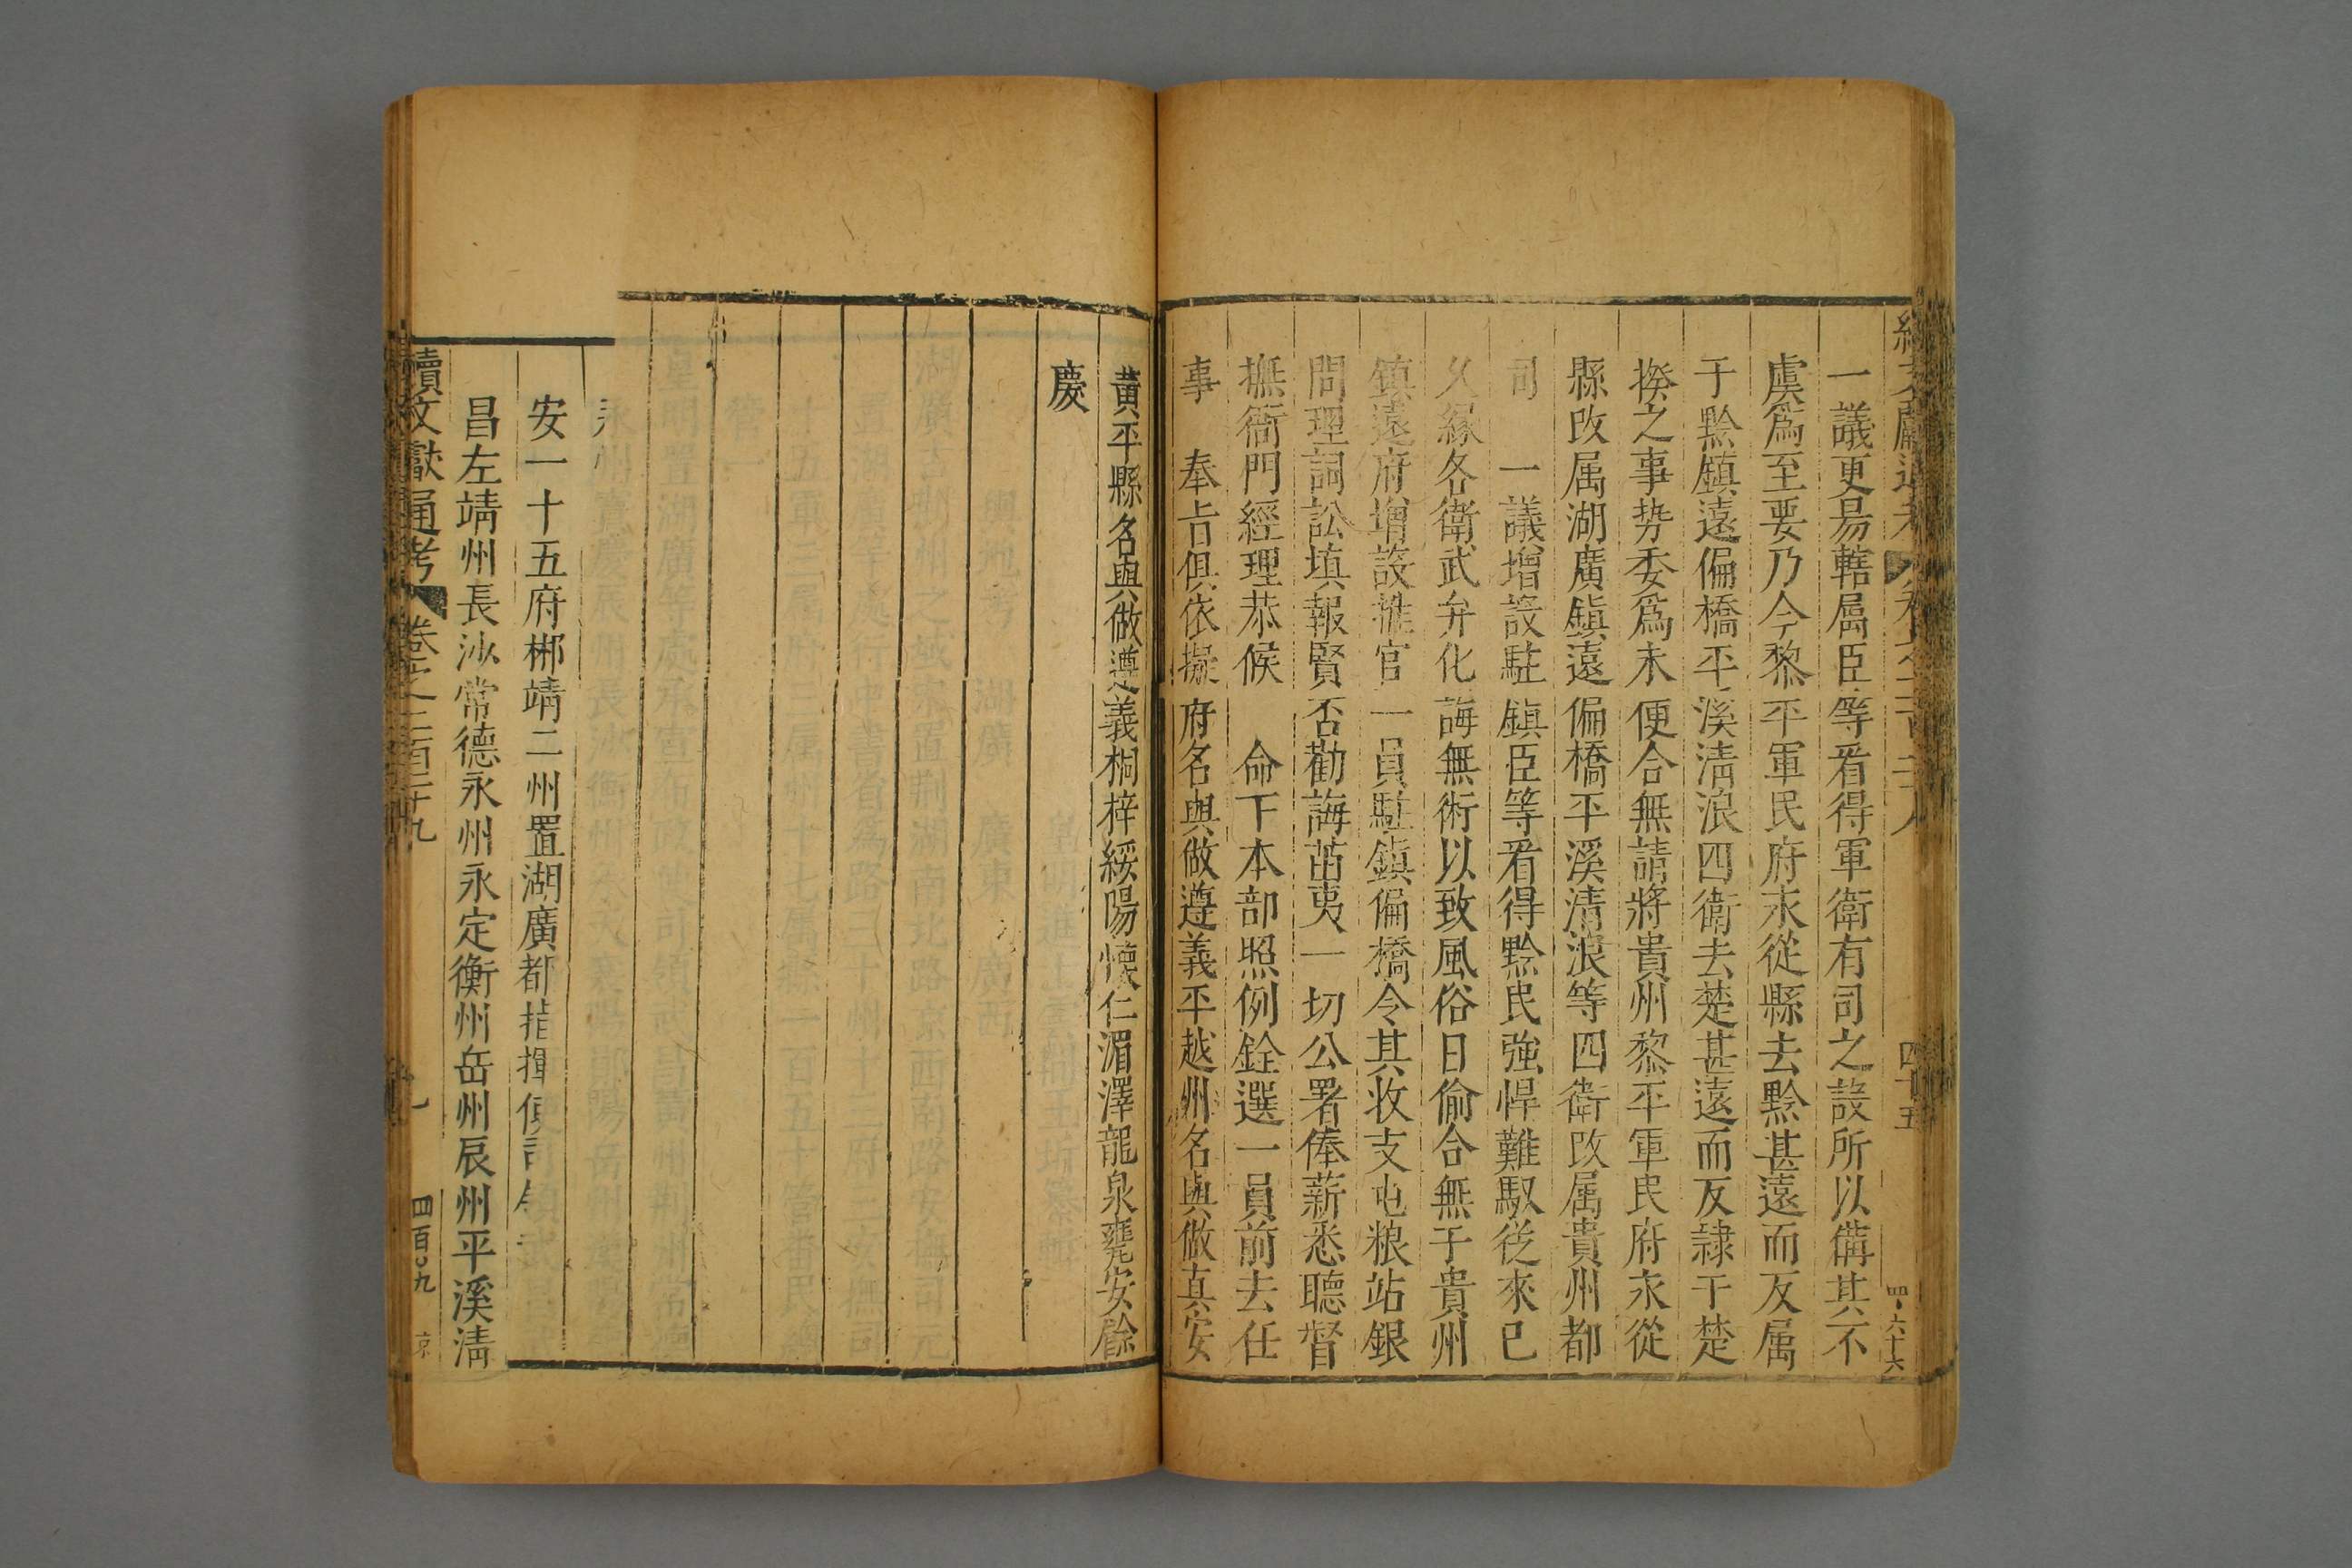 一議更易轄屬臣等看得軍衛有司之設所以備其不
虞爲至要乃今黎平軍民府永從縣去黔甚遠而反属
于黔鎮遠偏橋平溪清浪四衛去楚甚遠而反隷于楚
揆之事势委爲未便合無請將貴州黎平軍民府永從
縣改属湖廣鎮遠偏橋平溪清浪等四衛改属貴州都
司　一議增設駐鎮臣等看得黔民強悍難馭從來已
久緣各衛武弁化誨無術以致風俗日偷合無于貴州
鎮遠府增設推官一員駐鎮偏橋令其收支屯粮站銀
問理詞訟填報賢否勸誨苗夷一切公署俸薪悉聽督
撫衙門經理恭候　命下本部照例銓選一員前去任
事　奉旨俱依擬府名與做遵義平越州名與做真安
黄平縣名與做遵義桐梓綏陽懷仁湄澤龍泉甕安餘
慶
安一十五府郴靖二州置湖廣都指揮使司
昌左靖州長沙常德永州永定衡州岳州辰州平溪清
續文獻通考　卷之二百二十九　四百〇九